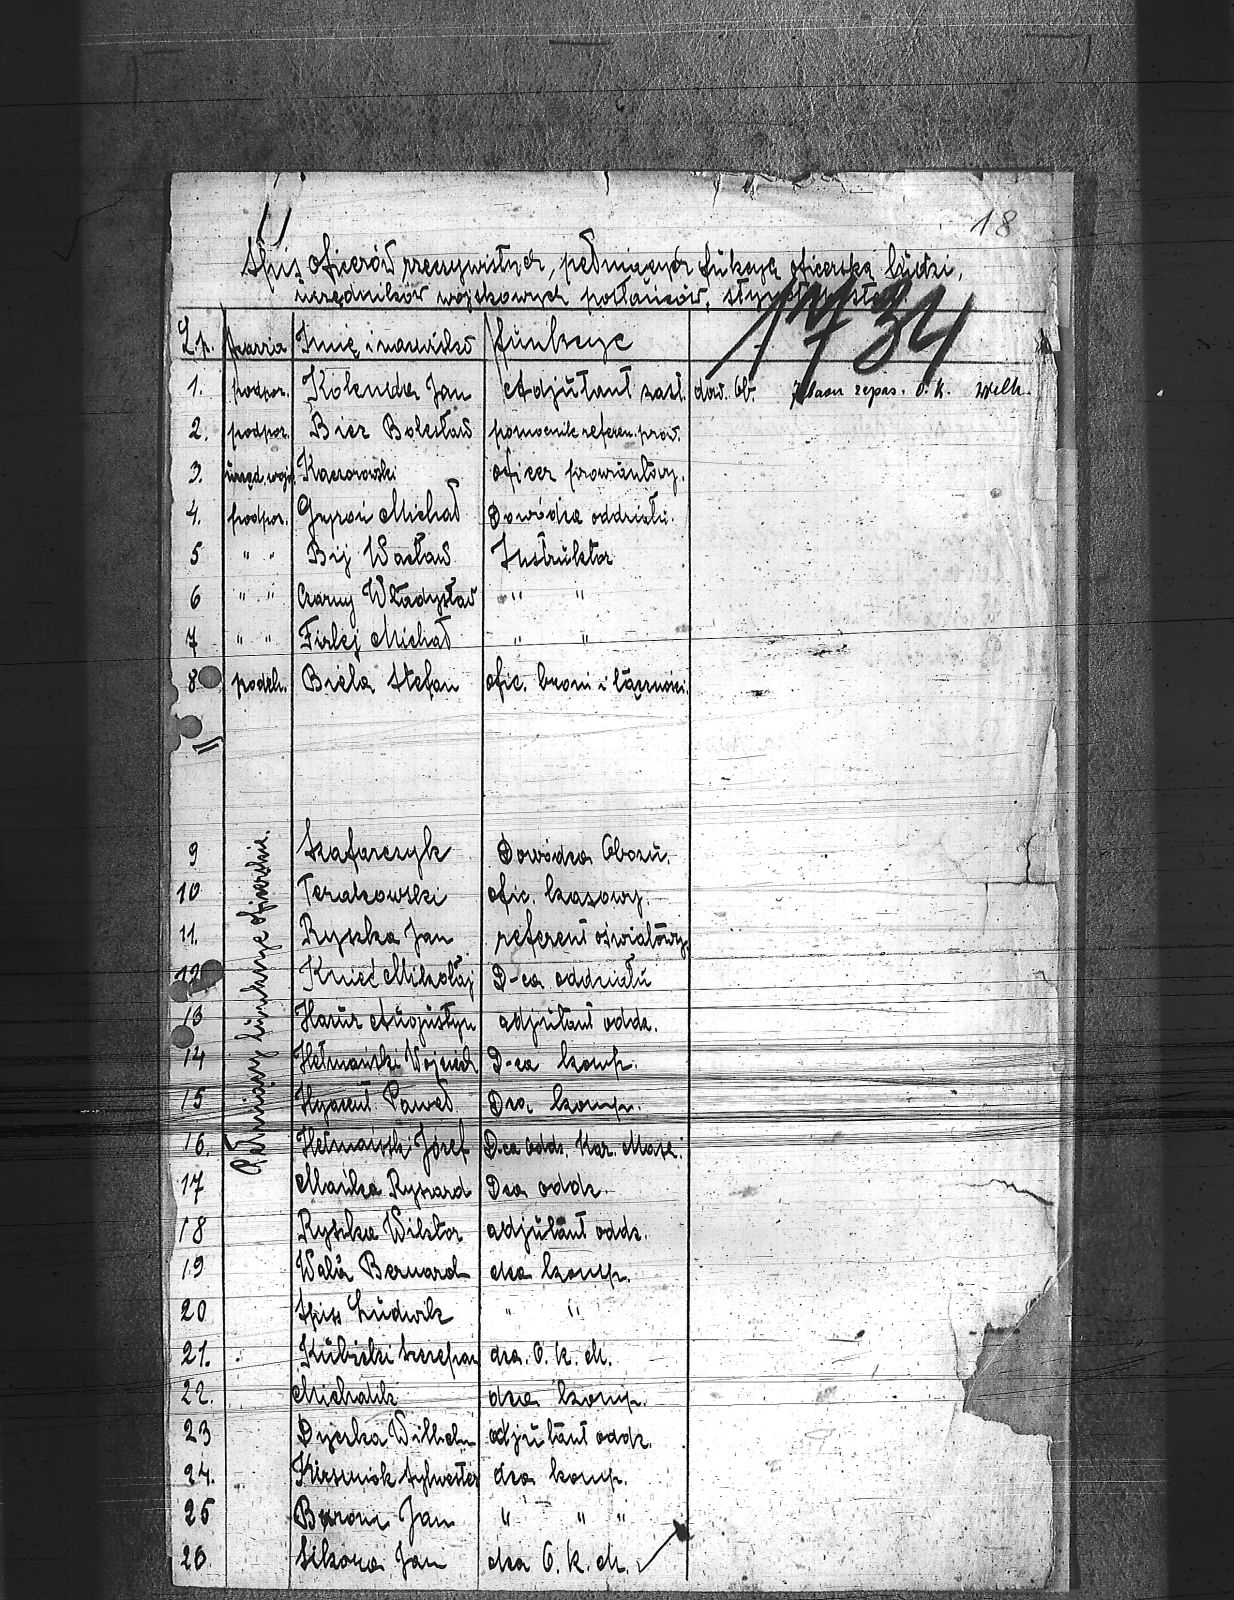 18
Spis oficerów rzeczywistych, pełniących fukcje oficerską ludzi,
urzędników wojskowych posłańców,
1734
L.p. Szarża Imię i nazwisko funkcje
1. podpor. Kolenda Jan Adjutant zast. dow. Ob. rezer. O. K.
2. podpor. Bier Bolesław pomocnik referen. prow.
3. urzęd. wojs. Kaczorowski oficer prowiantowy.
4. podpor. Gyroń Michał Dowódca oddziału.
5 " " Bij Wacław Instruktor
6 " " Czarny Władysław " "
7 " " Firlej Michał " "
8 podch. Biela Stefan ofic. broni i łączności.
Pełniący funkcje oficerskie.
9 Szafarczyk Dowódca Obozu.
10 Terakowski ofic. kasowy.
11. Ryszka Jan referent oświatowy
12 Knieć Mikołaj D-ca oddziału
13 Hazur Augustyn adjutant oddz.
14 Hetmański Wojciech D-ca komp.
15 Hyacent Paweł Dca komp.
16. Hetmański Józef D.ca oddz. Kar. Masz.
17 Mańka Ryszard Dca oddz.
18 Ryszka Wiktor adjutant oddz.
19 Wala Bernard dca komp.
20 Spis Ludwik " "
21. Kubicki Szczepan dca. O. K. M.
22. Michalik dca komp.
23 Dyczka Wilhelm adjutant oddz.
24. Krzysmiok Sylwester dca komp.
25 Baron Jan " " "
26 Sikora Jan dca O. K. M.